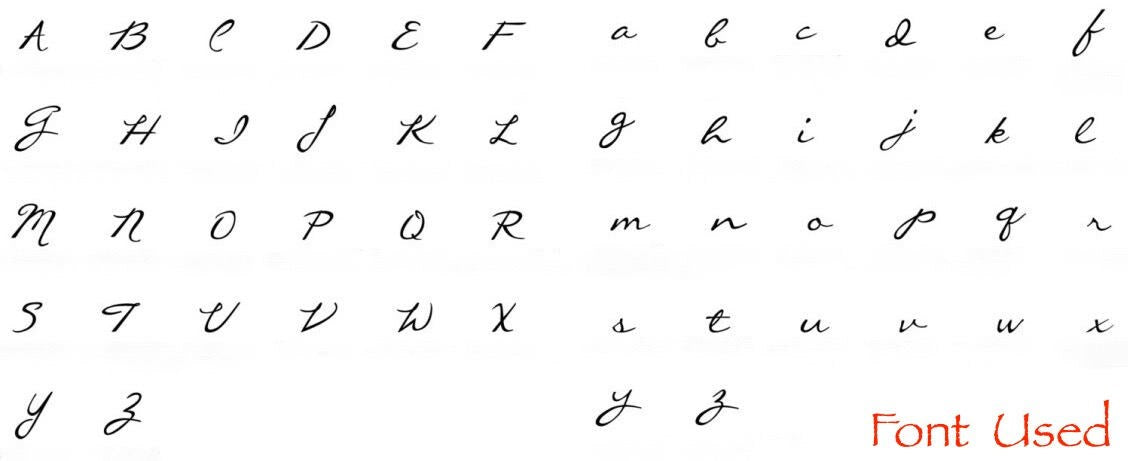 A B C D E F a b c d e f
G H I J K L g h i j k l
M N O P Q R m n o p q r
S T U V W X s t u v w x
Y Z y z
Font Used